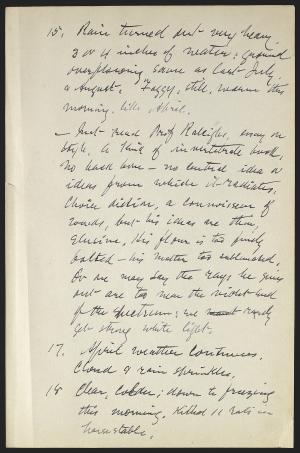 15. Rain turned out very heavy,
3 or 4 inches of water; ground
overflowing same as last July
& August. Foggy, still, warm this
morning, like April.
— Just read Prof Raleighs, essay on
Style. A kind of invertebrate book,
no back bone — no central idea or
ideas from which it radiates.
Choice diction, a connoisseur of
words, but his ideas are thin,
elusive. His flour is too finely
bolted — his matter too sublimated.
Or we may say the rays he gives
out are too near the violet end
of the spectrum; we rarely
get strong white light.
17. April weather continues.
Cloud & rain sprinkles,
18 Clear, colder; down to freezing
this morning. Killed 11 rats in
horse stable.